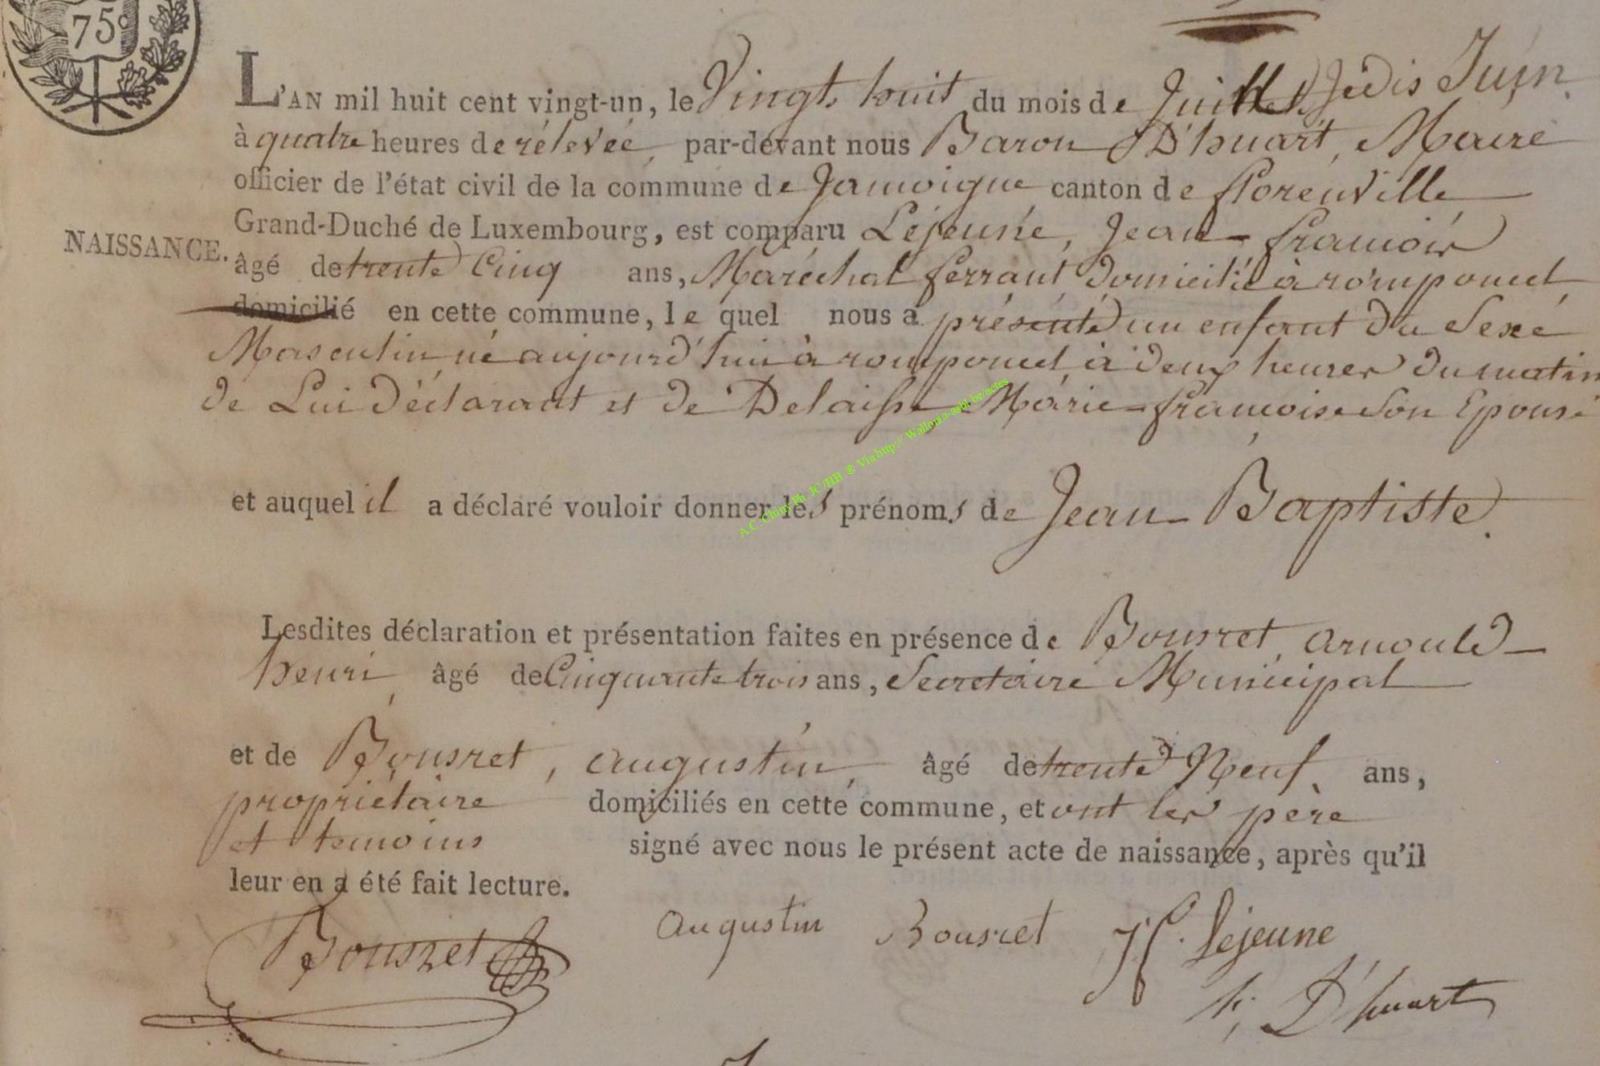 75c
L'AN mil huit cent vingt-un, le Vingt huit du mois de Juillet Jedis Juin.
à quatre heures de rélevée, par-devant nous Baron D'huart, Maire
officier de l'état civil de la commune de Jamoigne canton de florenville
Grand-Duché de Luxembourg, est comparu Léjeune, Jean-francois
NAISSANCE.
âgé de trente Cinq ans, Maréchal ferrant domicilié à romponcel
domicilié en cette commune, le quel nous a présenté un enfant du Sexe
Masculin né aujourd'hui à romponcel à deux heures du matin
de Lui Déclarant et de Delaisse, Marie-francoise Son Epouse
et auquel il a déclaré vouloir donner les prénoms de Jean-Baptiste.
Lesdites déclaration et présentation faites en présence de Bousret, arnould-
henri, âgé de Cinquante trois ans, Secretaire Municipal
et de Bousret, augustin, âgé de trente Neuf ans,
propriétaire domiciliés en cette commune, et ont les père
et temoins signé avec nous le présent acte de naissance, après qu'il
leur en a été fait lecture.
Bousret augustin Bousret Jf. Lejeune
D'huart